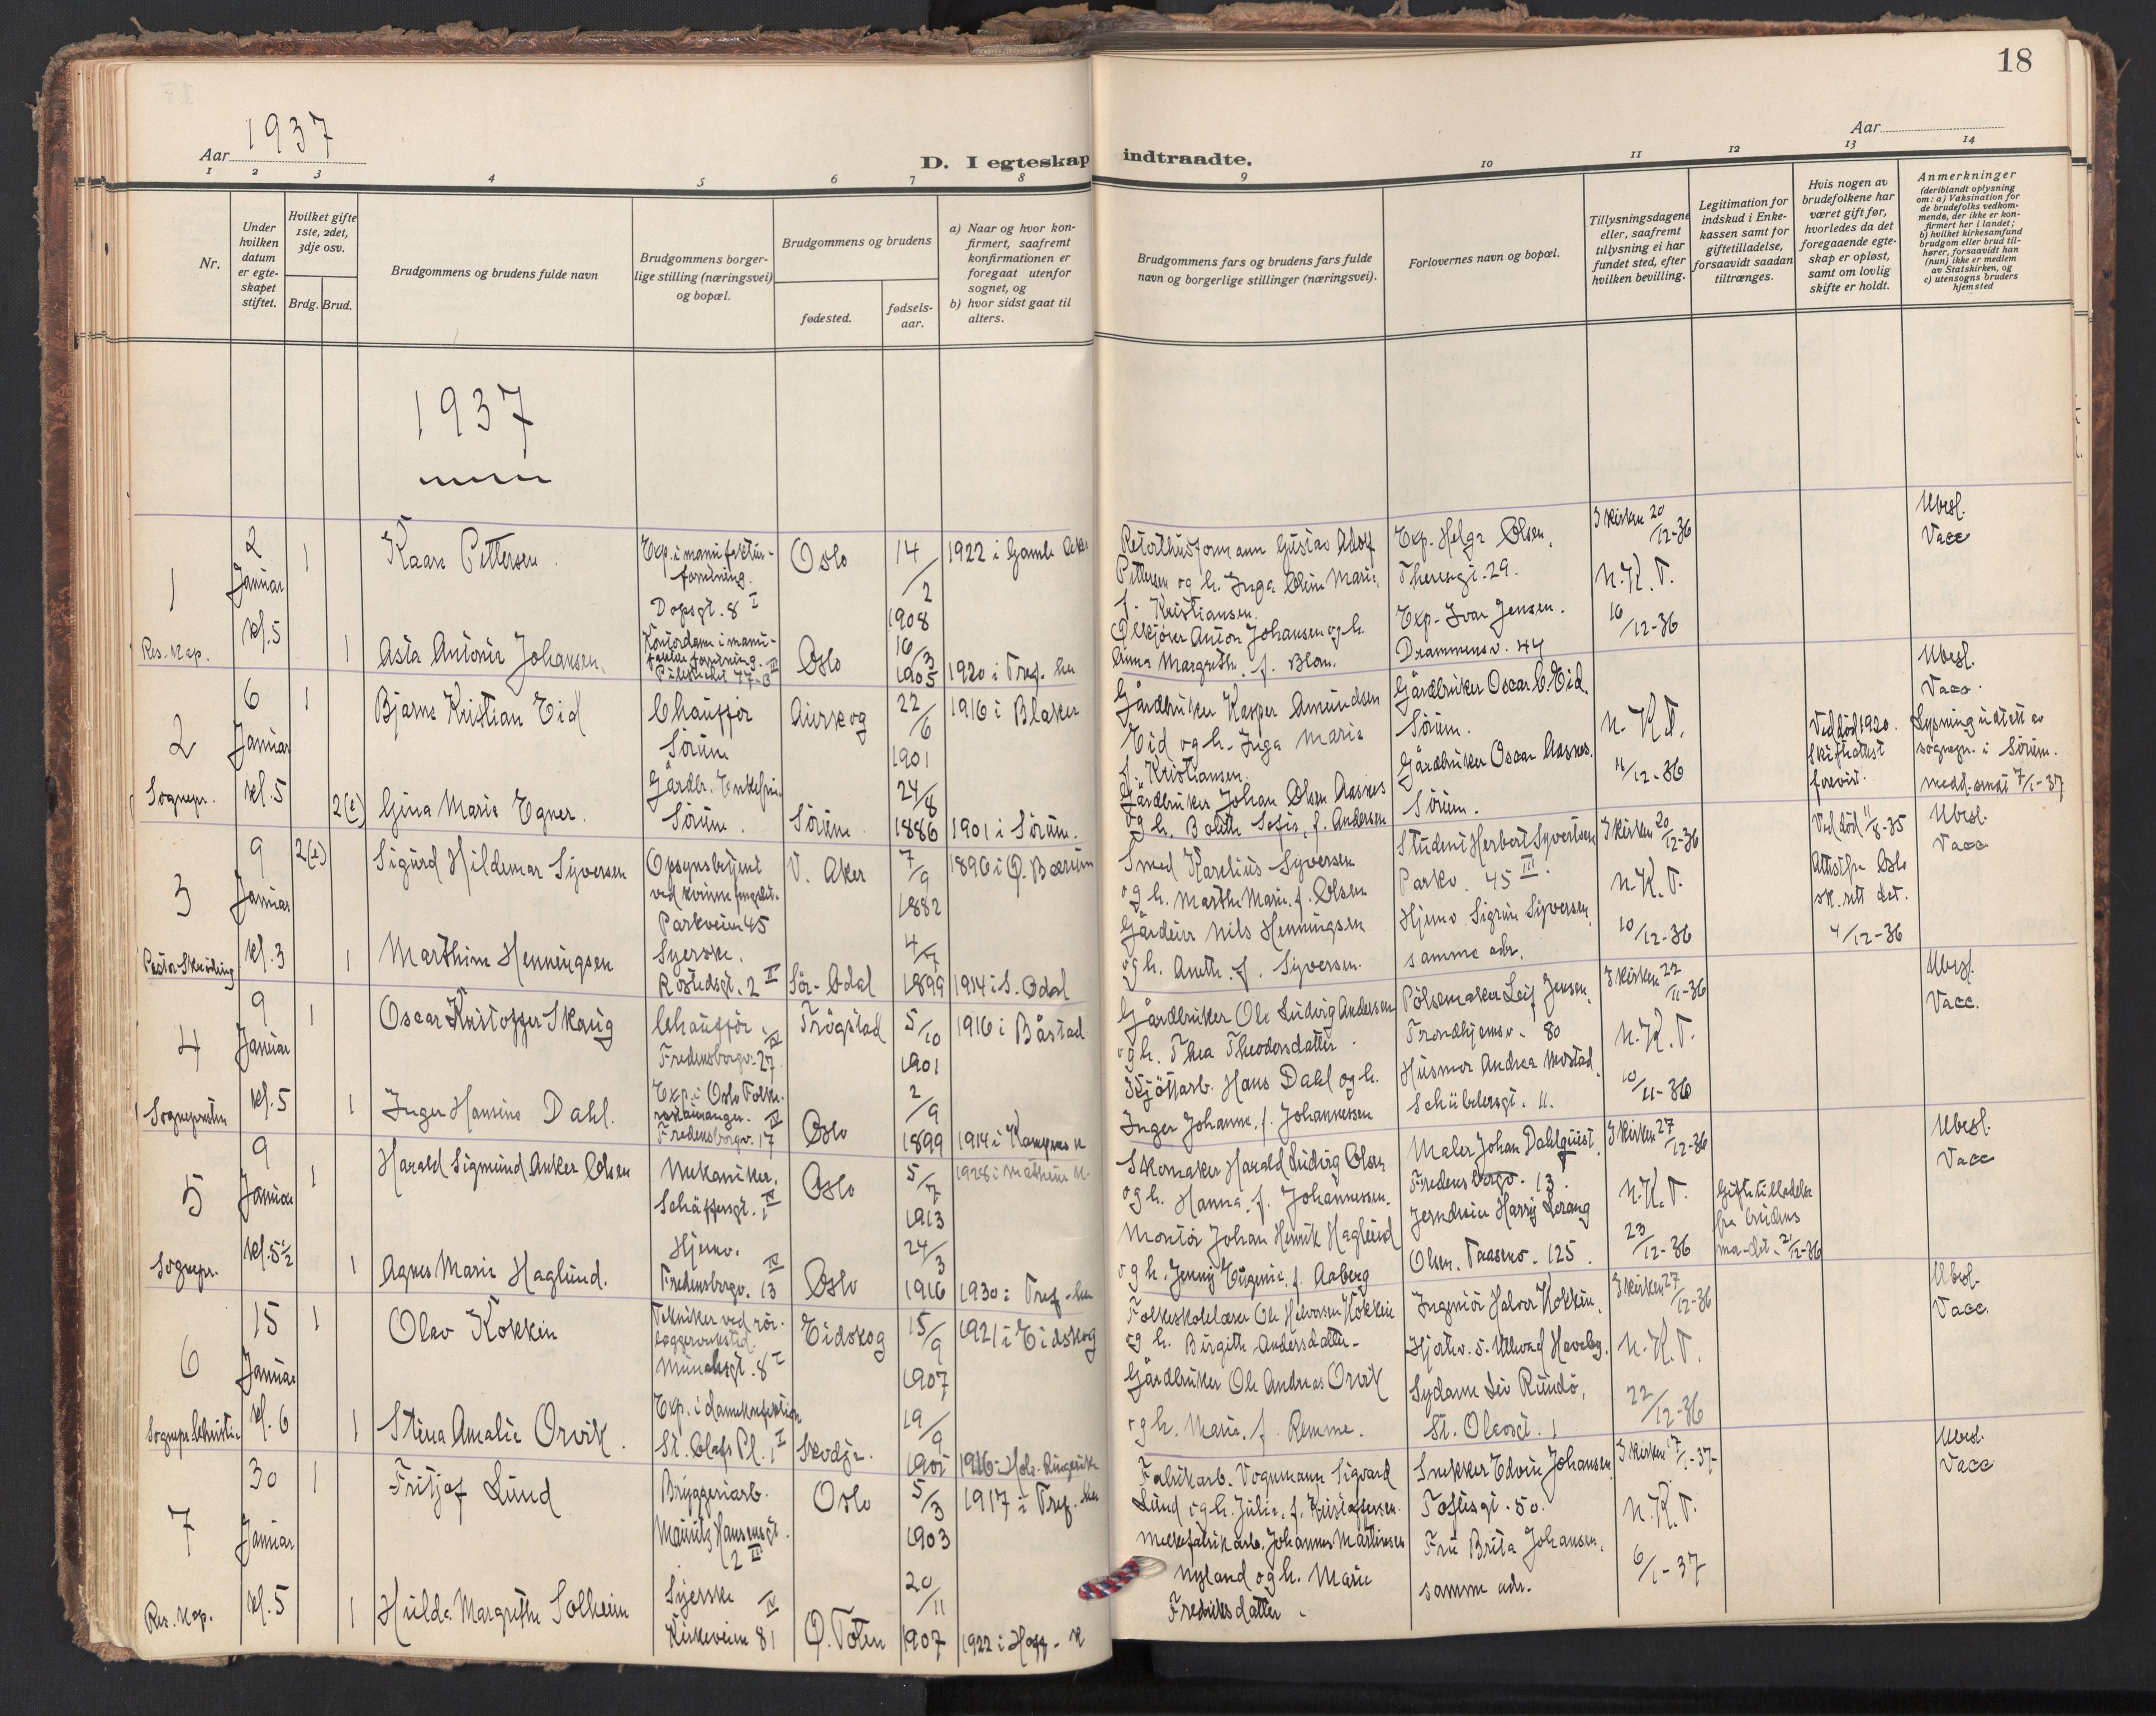 18
Aar 1937
Aar
D. I egteskap indtraadte.
1 2 3 4 5 6 7 8 9 10 11 12 13 14
Nr.
Under
hvilken
datum
er egte-
skapet
stiftet.
Hvilket gifte
1ste, 2det,
3dje osv.
Brdg. Brud.
Brudgommens og brudens fulde navn
Brudgommens borger-
lige stilling (næringsvei)
og bopæl.
Brudgommens og brudens
fødested.
fødsels-
aar.
a) Naar og hvor kon-
firmert, saafremt
konfirmationen er
foregaat utenfor
sognet, og
b) hvor sidst gaat til
alters.
Brudgommens fars og brudens fars fulde
navn og borgerlige stillinger (næringsvei).
Forlovernes navn og bopæl.
Tillysningsdagene
eller, saafremt
tillysning ei har
fundet sted, efter
hvilken bevilling.
Legitimation for
indskud i Enke-
kassen samt for
giftetilladelse,
forsaavidt saadan
tiltrænges.
Hvis nogen av
brudefolkene har
været gift før,
hvorledes da det
foregaaende egte-
skap er opløst,
samt om lovlig
skifte er holdt.
Anmerkninger
(deriblandt oplysning
om: a) Vaksination for
de brudefolks vedkom-
mende, der ikke er kon-
firmert her i landet;
b) hvilket kirkesamfund
brudgom eller brud til-
hører, forsaavidt han
(hun) ikke er medlem
av Statskirken, og
c) utensogns bruders
hjemsted
1937
1
Res. Kap.
2
Januar
kl. 5
1
Kaare Pettersen.
Exp. i manufaktur-
forretning.
Dopsgt. 8 I
Oslo
14/2
1908
1922 i Gamle Aker
1
Asta Antonie Johansen.
Kontordame i manu-
fakturforretning.
Pilestredet 77 B III
Oslo
16/3
1905
1920 i Tref. ku
Retorthusformann Gustav Adolf
Pettersen og h. Inga Oline Marie,
f. Kristiansen.
Ølkjører Anton Johansen og h.
Anna Margrethe f. Blom.
Exp. Helge Olsen,
Theresgt. 29.
Exp. Ivar Jensen.
Drammensv. 44
I kirken 20/12-36
n. K. T.
16/12-36
Ubesl.
Vacc
2
Sognepr.
6
Januar
kl. 5
1
Bjarne Kristian Eid
Chauffør
Sørum
Aurskog
22/6
1901
1916 i Blaker
2(e)
Gina Marie Egner.
Gårdbr. Enkefru
Sørum.
Sørum
24/8
1886
1901 i Sørum.
Gårdbruker Kasper Amundsen
Eid og h. Inga Marie
f. Kristiansen.
Gårdbruker Johan Olsen Aasnes
og h. Bolette Sofie, f. Andersen
Gårdbruker Oscar C. Eid.
Sørum.
Gårdbruker Oscar Aasnes.
Sørum.
n. K. T.
11/12-36
Ved død 1920.
Skifteattest
forevist.
Ubesl.
Vacc.
Lysning utstett av
sognepr. i Sørum.
medd. sendt 7/1-37
3
Pastor Skouding
9
Januar
kl. 3
2(e)
Sigurd Hildemar Syversen
Opsynsbetjent
ved kvinnefengslet.
Parkveien 45
V. Aker
7/9
1882
1896 i Ø. Bærum
1
Marthine Henningsen
Syerske.
Rostedsgt. 2 II
Sør-Odal
4/7
1899
1914 i S. Odal
Smed Karelius Syversen
og h. Marthe Marie, f. Olsen
Gårdeier Nils Henningsen
og h. Anethe f. Syversen.
Student Herbert Syvertsen
Parkv. 45 III.
Hjemv. Sigrun Syversen,
samme adr.
I kirken 20/12-36
n. K. T.
10/12-36
Ved død 11/8-35
Attest fra Oslo
sk. rett dat.
4/12-36
Ubesl.
Vacc
4
Sognepresten
9
Januar
kl. 5
1
Oscar Kristoffer Skaug
Chauffør.
Fredensborgv. 27 IV
Trøgstad
5/10
1901
1916 i Båstad
1
Inger Hansine Dahl.
Exp. i Oslo Folke-
Fredensborgv. 17 IV
Oslo
2/9
1899
1914 i Kampens k
Gårdbruker Ole Ludvig Andersen
og h. Thea Theodorsdatter.
Kjøttarb. Hans Dahl og h.
Inger Johanne, f. Johannessen
Pølsemaker Leif Jensen,
Trondhjemsv. 80
Husmor Andrea Mostad.
Schüblersgt. 11.
I kirken 22/11-36
n. K. T.
10/11-36
Ubesl.
Vacc.
5
Sognepr.
9
Januar
kl. 5 1/2
1
Harald Sigmund Anker Olsen
Mekaniker.
Schäffersgt. 1 IV
Oslo
5/7
1913
1928 i Matheus k.
1
Agnes Marie Haglund.
Hjemv.
Fredensborgv. 13 IV
Oslo
24/3
1916
1930 i Tref. ku
Skomaker Harald Ludvig Olsen
og h. Hanna, f. Johannessen.
Montør Johan Henrik Haglund
og h. Jenny Eugenie f. Aaberg
Maler Johan Dahlquist,
Fredensborgv. 13.
Jerndreier Harry Lorang
Olsen. Taasenv. 125.
I kirken 27/12-36
n. K. T.
23/12-36
Giftetilladelse
fra brudens
mor dat. 21/12-36
Ubesl.
Vacc
6
Sognepr. Christie
15
Januar
kl. 6
1
Olav Kokkin
Tekniker ved rør-
leggerverksted.
Munchsgt. 8 I
Eidskog
15/9
1907
1921 i Eidskog
1
Stina Amalie Orvik.
Exp. i damekonfektion
St. Olafs Pl. 1 I
Skodje.
19/9
1901
1916 i Hole. Ringerike
Folkeskolelærer Ole Halvorsen Kokkin
og h. Birgitte Andersdatter.
Gårdbruker Ole Andreas Orvik
og h. Marie, f. Remme.
Ingeniør Halvor Kokkin,
Hjortv. 5. Ullevaal Haveby.
Sydame Liv Rundö,
St. Olavsgt. 1
I kirken 27/12-36
n. K. T.
22/12-36
Ubesl.
Vacc.
7
Res. Kap.
30
Januar
kl. 5
1
Fritjof Lund
Bryggeriarb.
Mauritz Hansensgt.
2 III
Oslo
5/3
1903
1917 i Tref. ku
1
Hulda Margrethe Solheim
Syerske
Kirkeveien 81 IV
Ø. Toten
20/11
1907
1922 i Hoff k
Fabrikarb. Vognmann Sigvard
Lund og h. Julie, f. Kristoffersen.
Melkefabrikarb. Johannes Martinsen
Nyland og h. Marie
Fredriksdatter.
Snekker Edvin Johansen,
Toftesgt. 50.
Fru Brita Johansen,
samme adr.
I kirken 17/1-37
n. K. T.
6/1-37
Ubesl.
Vacc